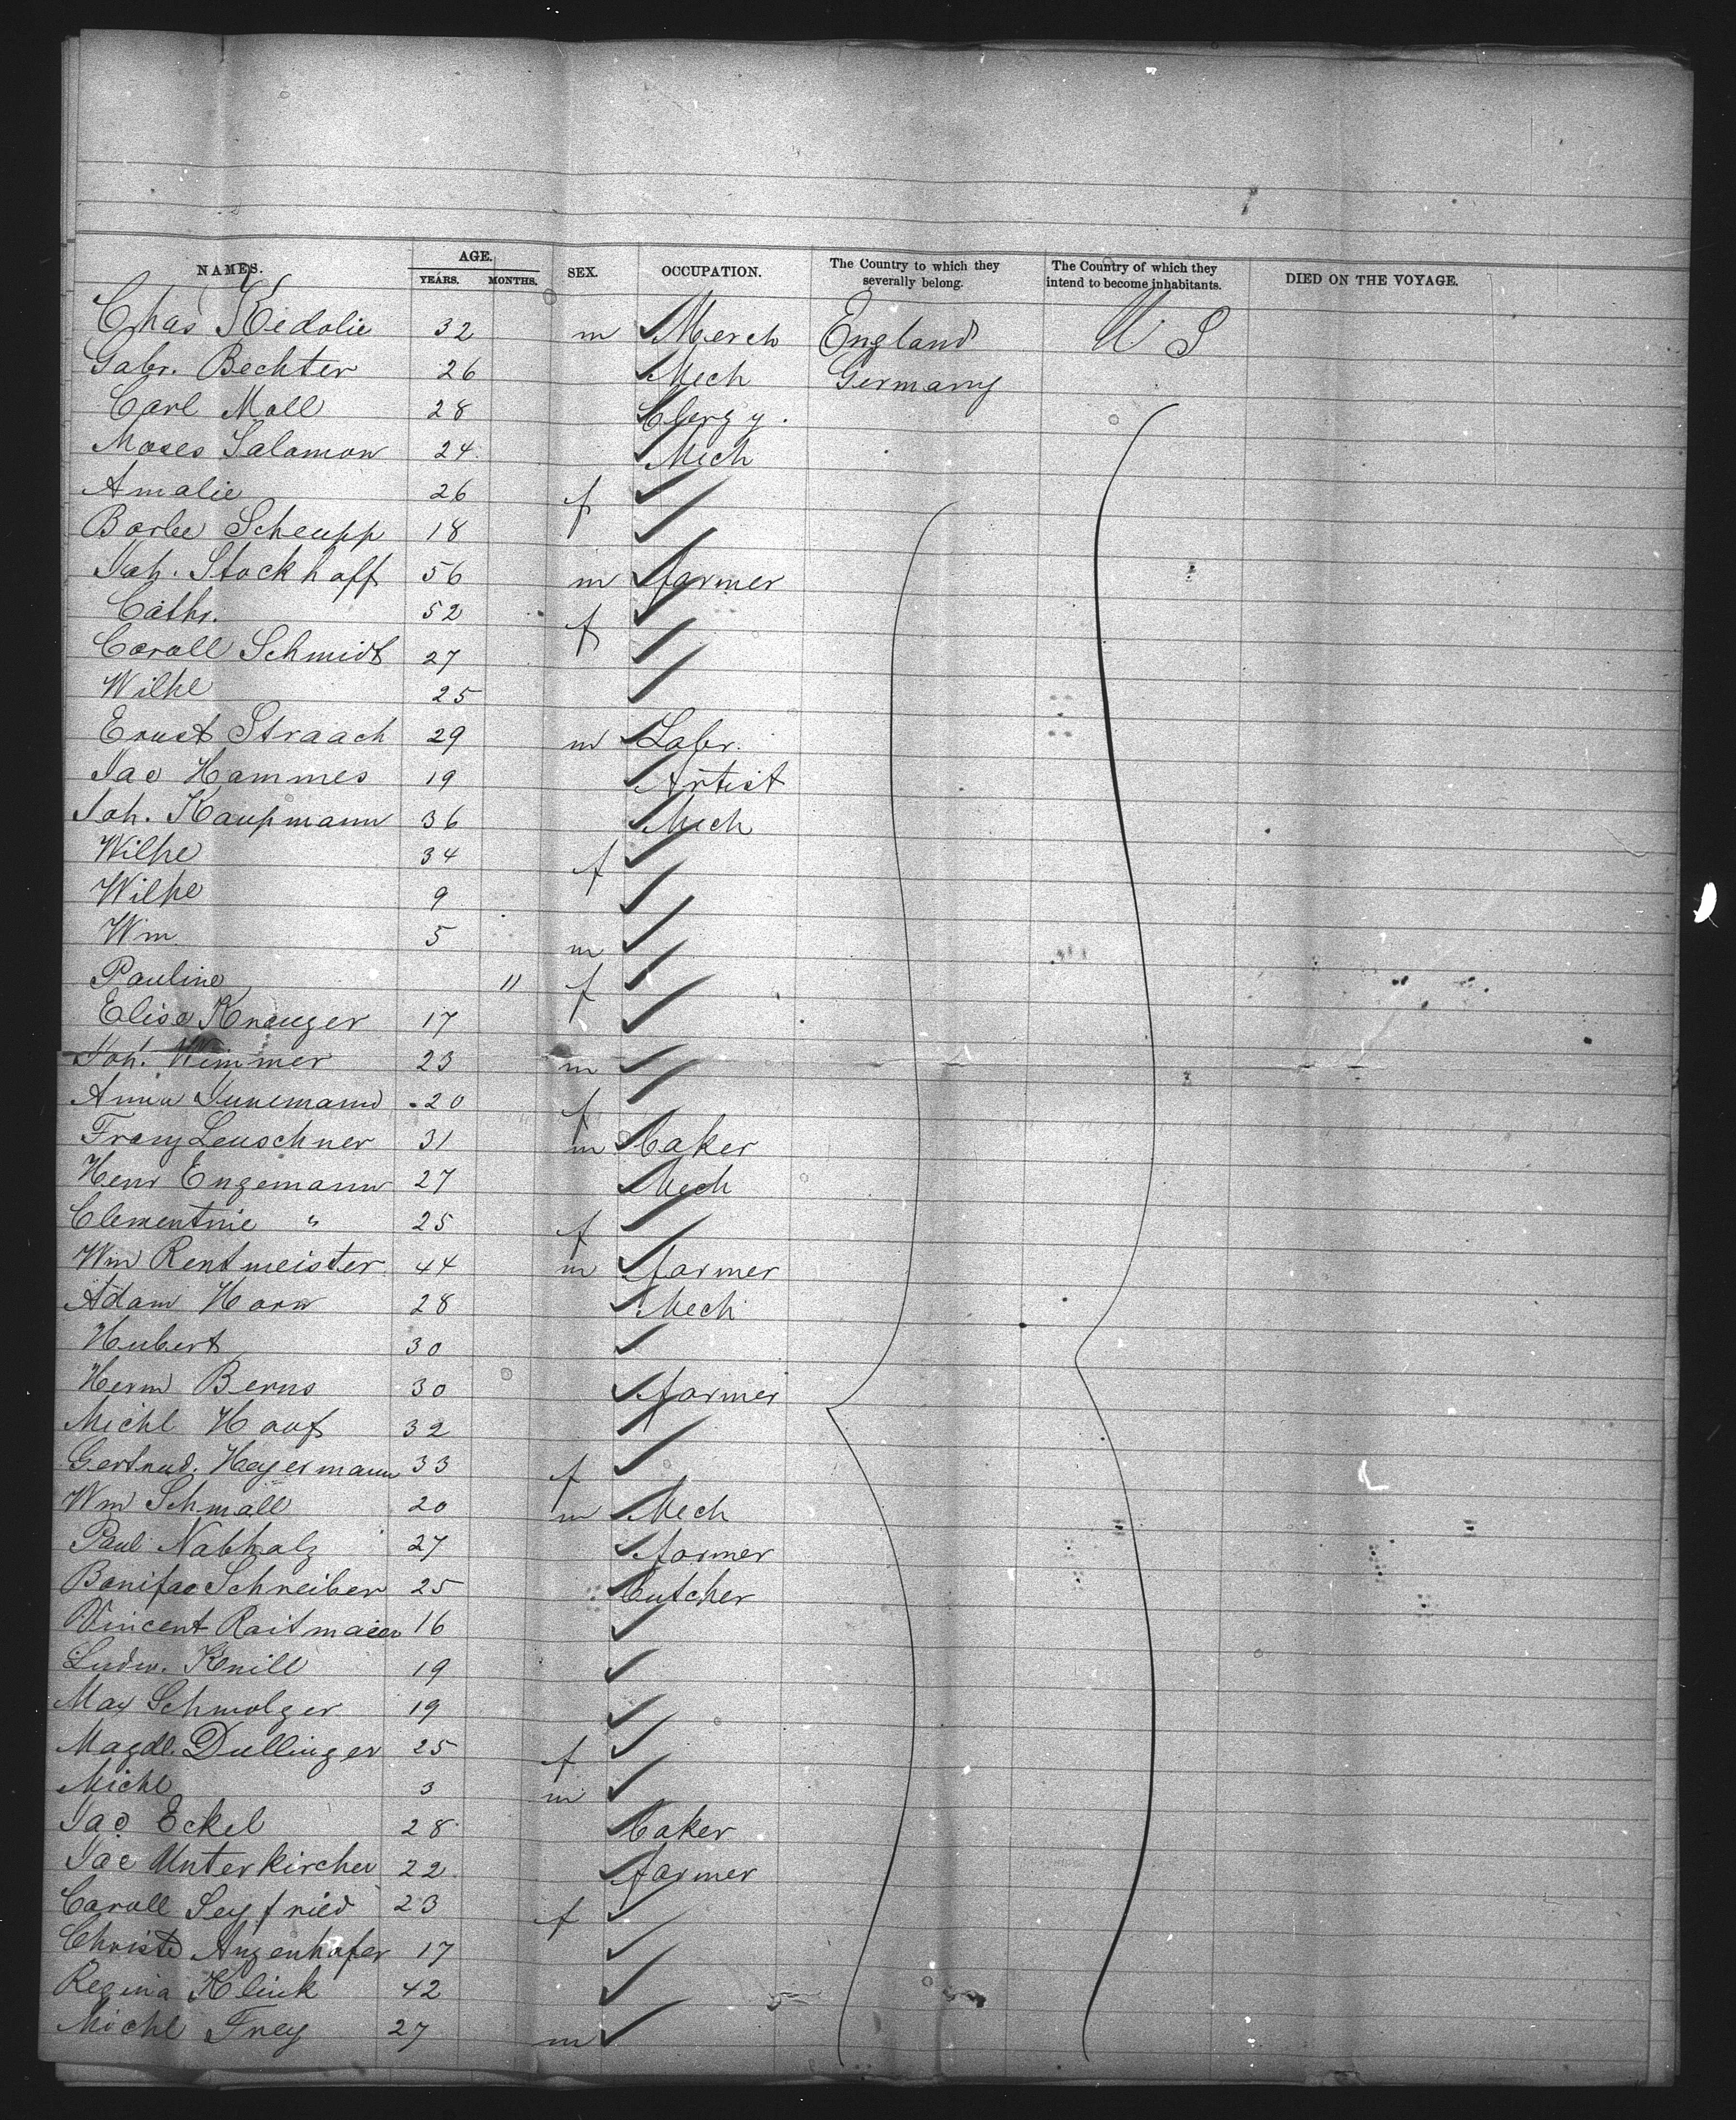 NAMES. AGE. YEARS. MONTHS. SEX. OCCUPATION. The Country to which they severally belong. The Country of which they intend to become inhabitants. DIED ON THE VOYAGE.
Chas Kidolie 32 m Merch England U. S
Gabr. Bechter 26 Mech Germany
Carl Moll 28 Clergy.
Moses Salamon 24 Mech
Amalie 26 f
Barbe Scheupp 18
Joh. Stockhoff 56 m farmer
Cathr. 52 f
Caroll Schmidt 27
Wilhe 25
Ernst Straach 29 m Labr.
Jac Hammes 19 Artist
Joh. Kaupmann 36 Mech
Wilhe 34 f
Wilhe 9
Wm 5 m
Pauline 11 f
Elise Knauger 17
Joh. Wimmer 23 m
Anna Junemann 20 f
Franz Leuschner 31 m baker
Henr Engemann 27 Mech
Clementine " 25 f
Wm Rentmeister 44 m farmer
Adam Horn 28 Mech
Hubert 30
Herm Berns 30 farmer
Michl Hauf 32
Gertrud. Heyermann 33 f
Wm Schmall 20 m Mech
Paul Nabholz 27 farmer
Bonifac Schreiber 25 butcher
Vincent Raitmaier 16
Ludw. Knill 19
Max Schmolzer 19
Magdl. Dullinger 25 f
Michl 3 m
Jac Eckel 28 baker
Jac Unterkircher 22 farmer
Caroll Seyfried 23 f
Christe Angenhofer 17
Regina Klink 42
Michl Frey 27 m